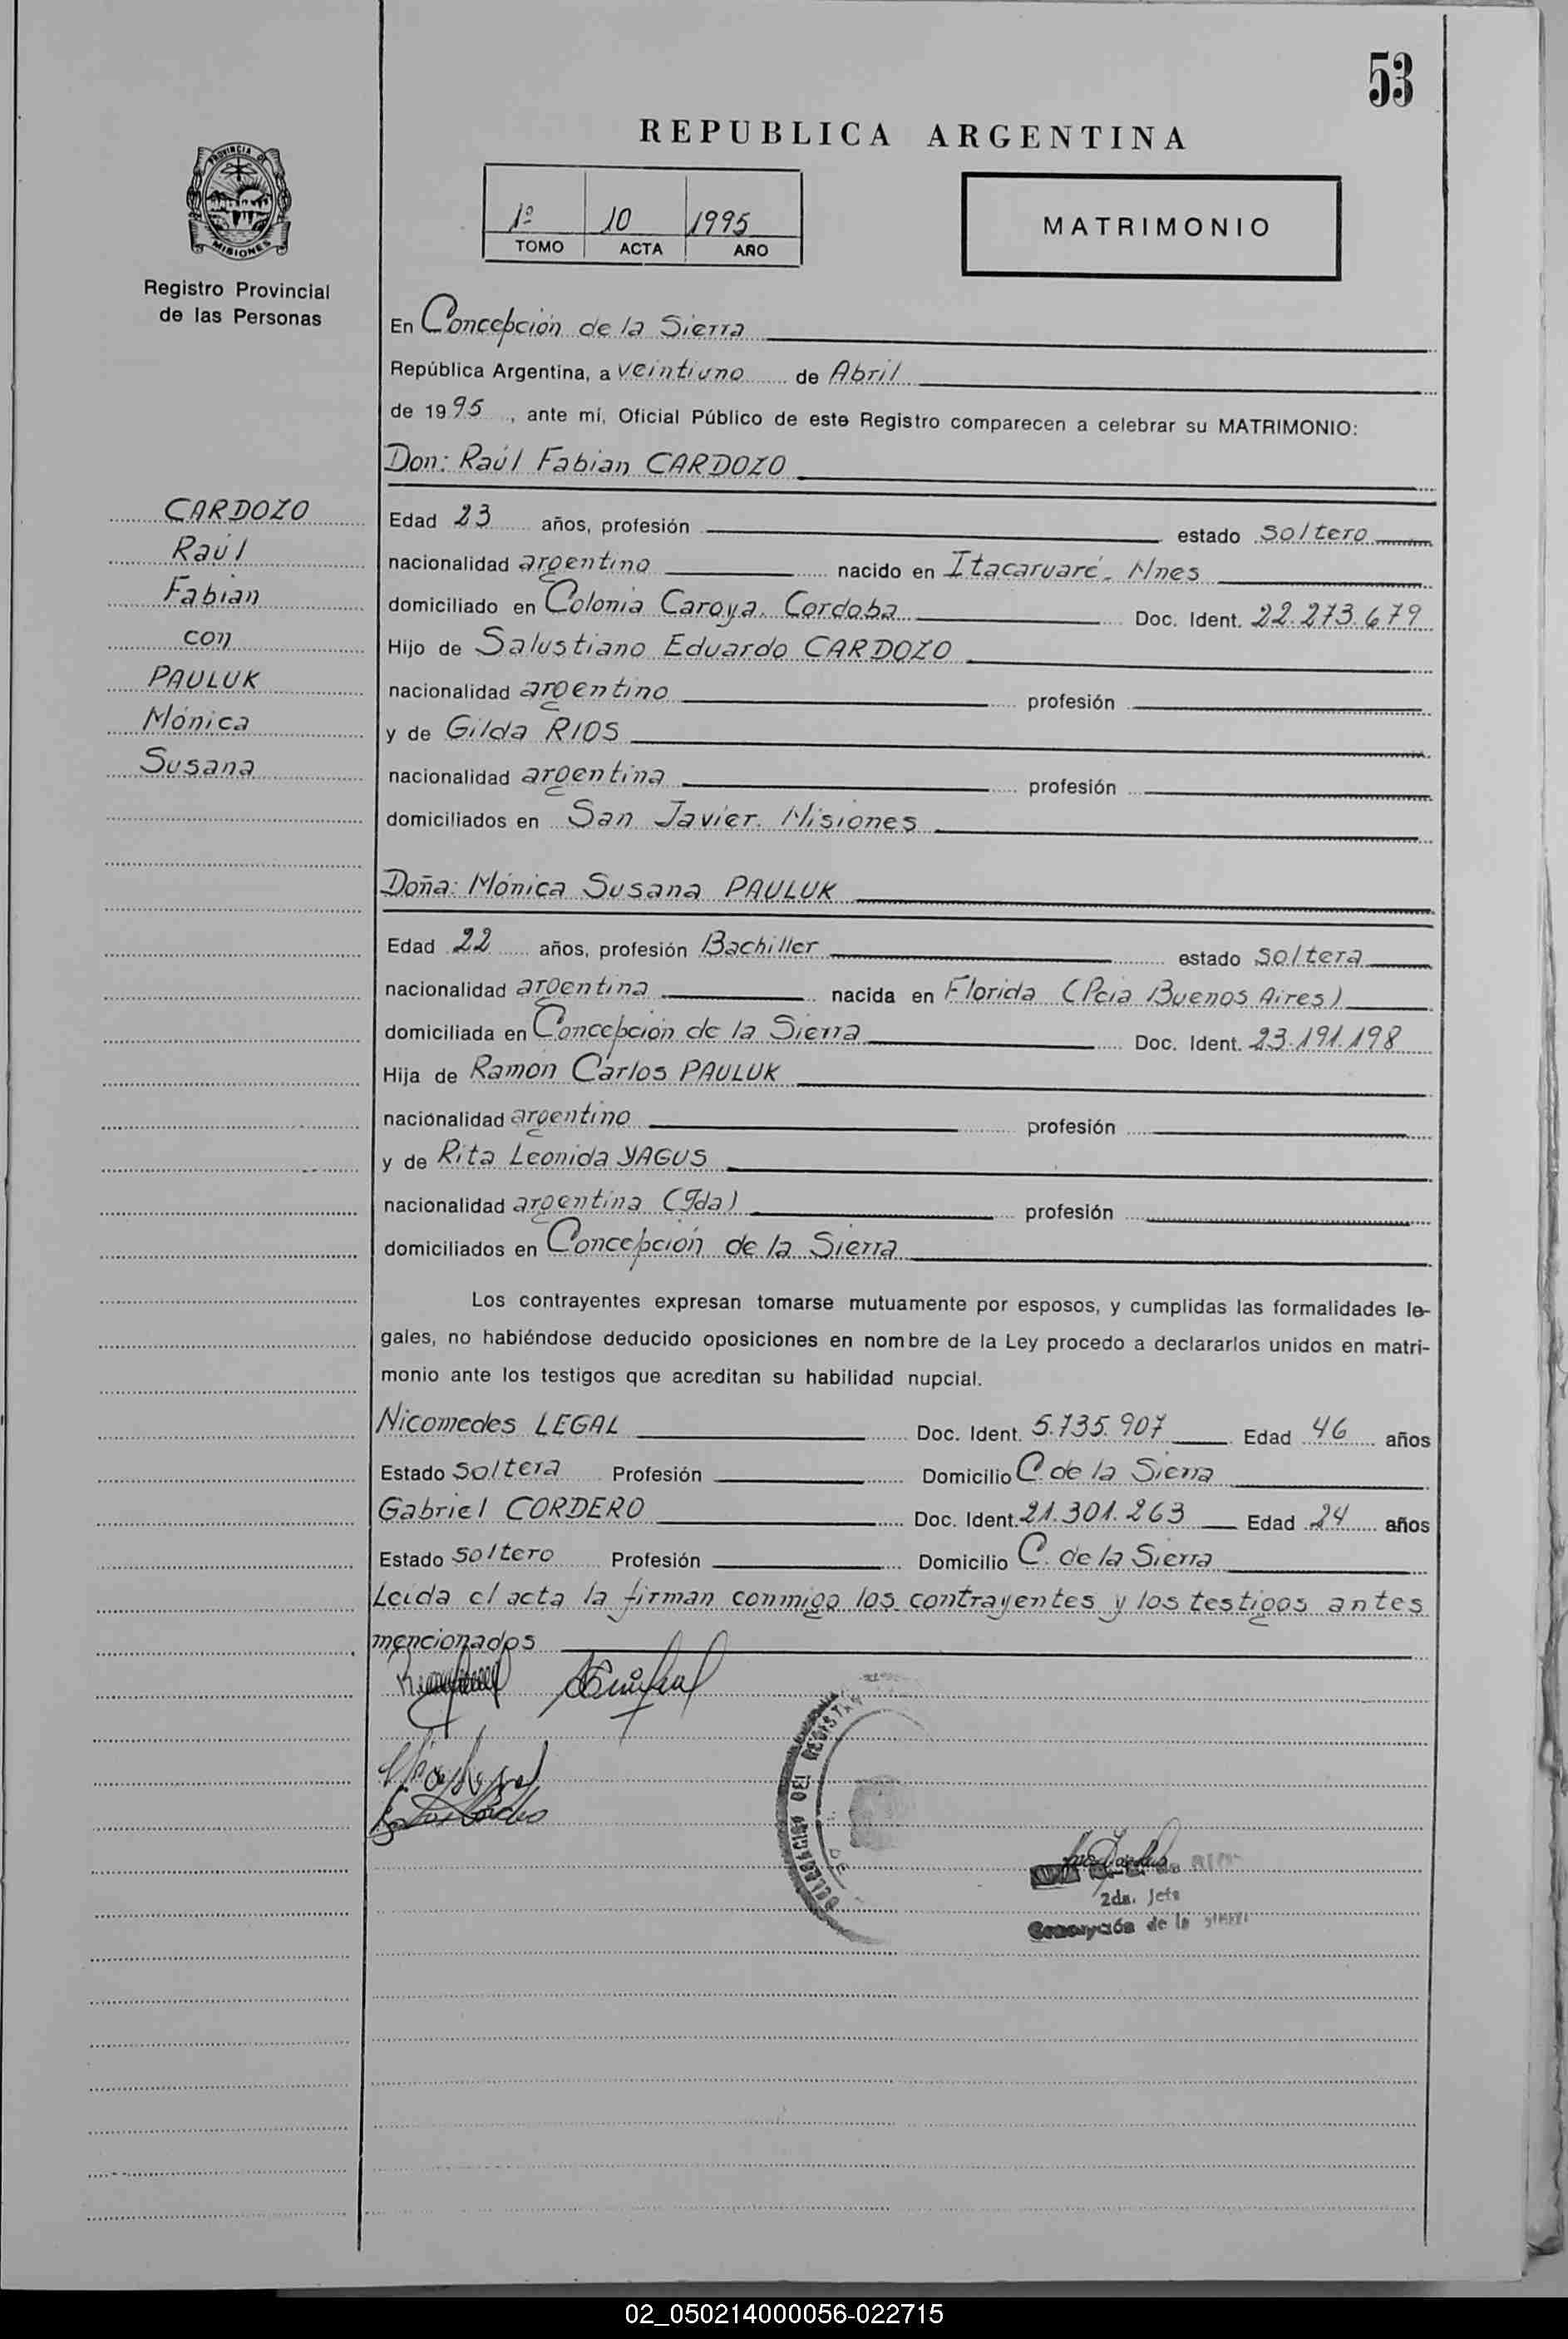 53
REPUBLICA ARGENTINA
PROVINCIA DE
MISIONES
Registro Provincial
de las Personas
1º 10 1995
TOMO ACTA AÑO
MATRIMONIO
En Concepción de la Sierra
República Argentina, a veintiuno de Abril
de 1995, ante mí, Oficial Público de este Registro comparecen a celebrar su MATRIMONIO:
Don: Raúl Fabian CARDOZO
CARDOZO
Raúl
Fabian
con
PAULUK
Mónica
Susana
Edad 23 años, profesión estado soltero
nacionalidad argentino nacido en Itacaruaré. Mnes
domiciliado en Colonia Caroya. Cordoba Doc. Ident. 22.273.679
Hijo de Salustiano Eduardo CARDOZO
nacionalidad argentino profesión
y de Gilda RIOS
nacionalidad argentina profesión
domiciliados en San Javier. Misiones
Doña: Mónica Susana PAULUK
Edad 22 años, profesión Bachiller estado soltera
nacionalidad argentina nacida en Florida (Pcia Buenos Aires)
domiciliada en Concepción de la Sierra Doc. Ident. 23.191.198
Hija de Ramón Carlos PAULUK
nacionalidad argentino profesión
y de Rita Leonida YAGUS
nacionalidad argentina (Fda) profesión
domiciliados en Concepción de la Sierra
Los contrayentes expresan tomarse mutuamente por esposos, y cumplidas las formalidades le-
gales, no habiéndose deducido oposiciones en nombre de la Ley procedo a declararlos unidos en matri-
monio ante los testigos que acreditan su habilidad nupcial.
Nicomedes LEGAL Doc. Ident. 5.735.907 Edad 46 años
Estado soltera Profesión Domicilio C. de la Sierra
Gabriel CORDERO Doc. Ident. 21.301.263 Edad 24 años
Estado soltero Profesión Domicilio C. de la Sierra
Leída el acta la firman conmigo los contrayentes y los testigos antes
mencionados
DELEGACION DEL REGISTRO
DE
2da. Jefe
Concepción de la Sierra
02_050214000056-022715